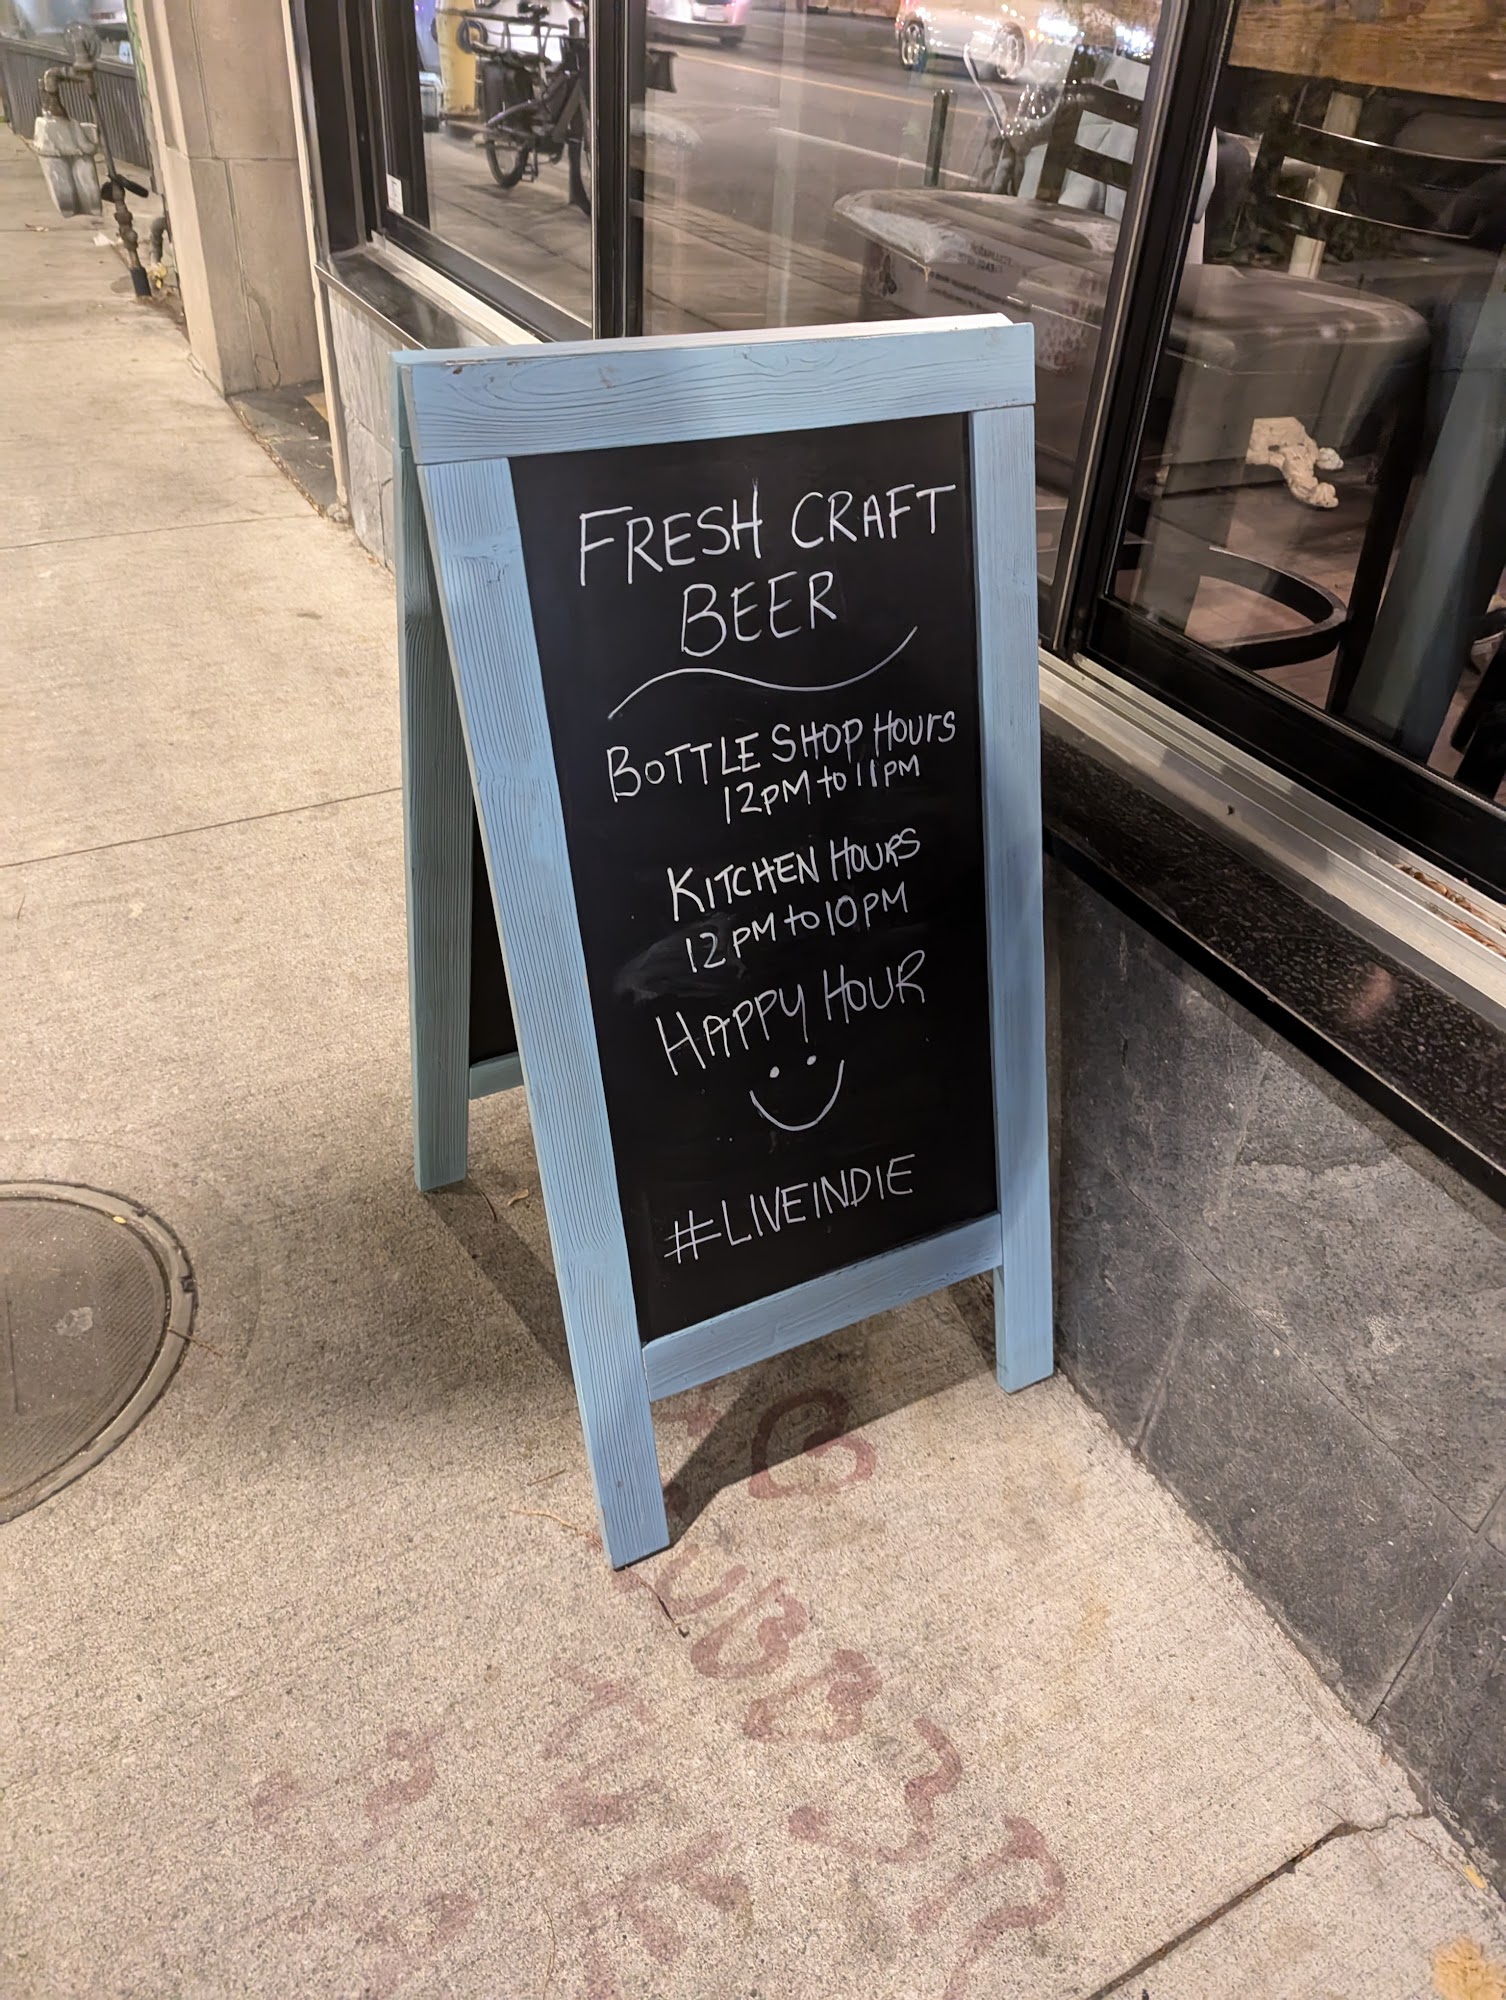 FRESH CRAFT
BEER
BOTTLE SHOP HOURS
12PM to 11PM
KITCHEN HOURS
12PM to 10PM
HAPPY HOUR
#LIVEINDIE